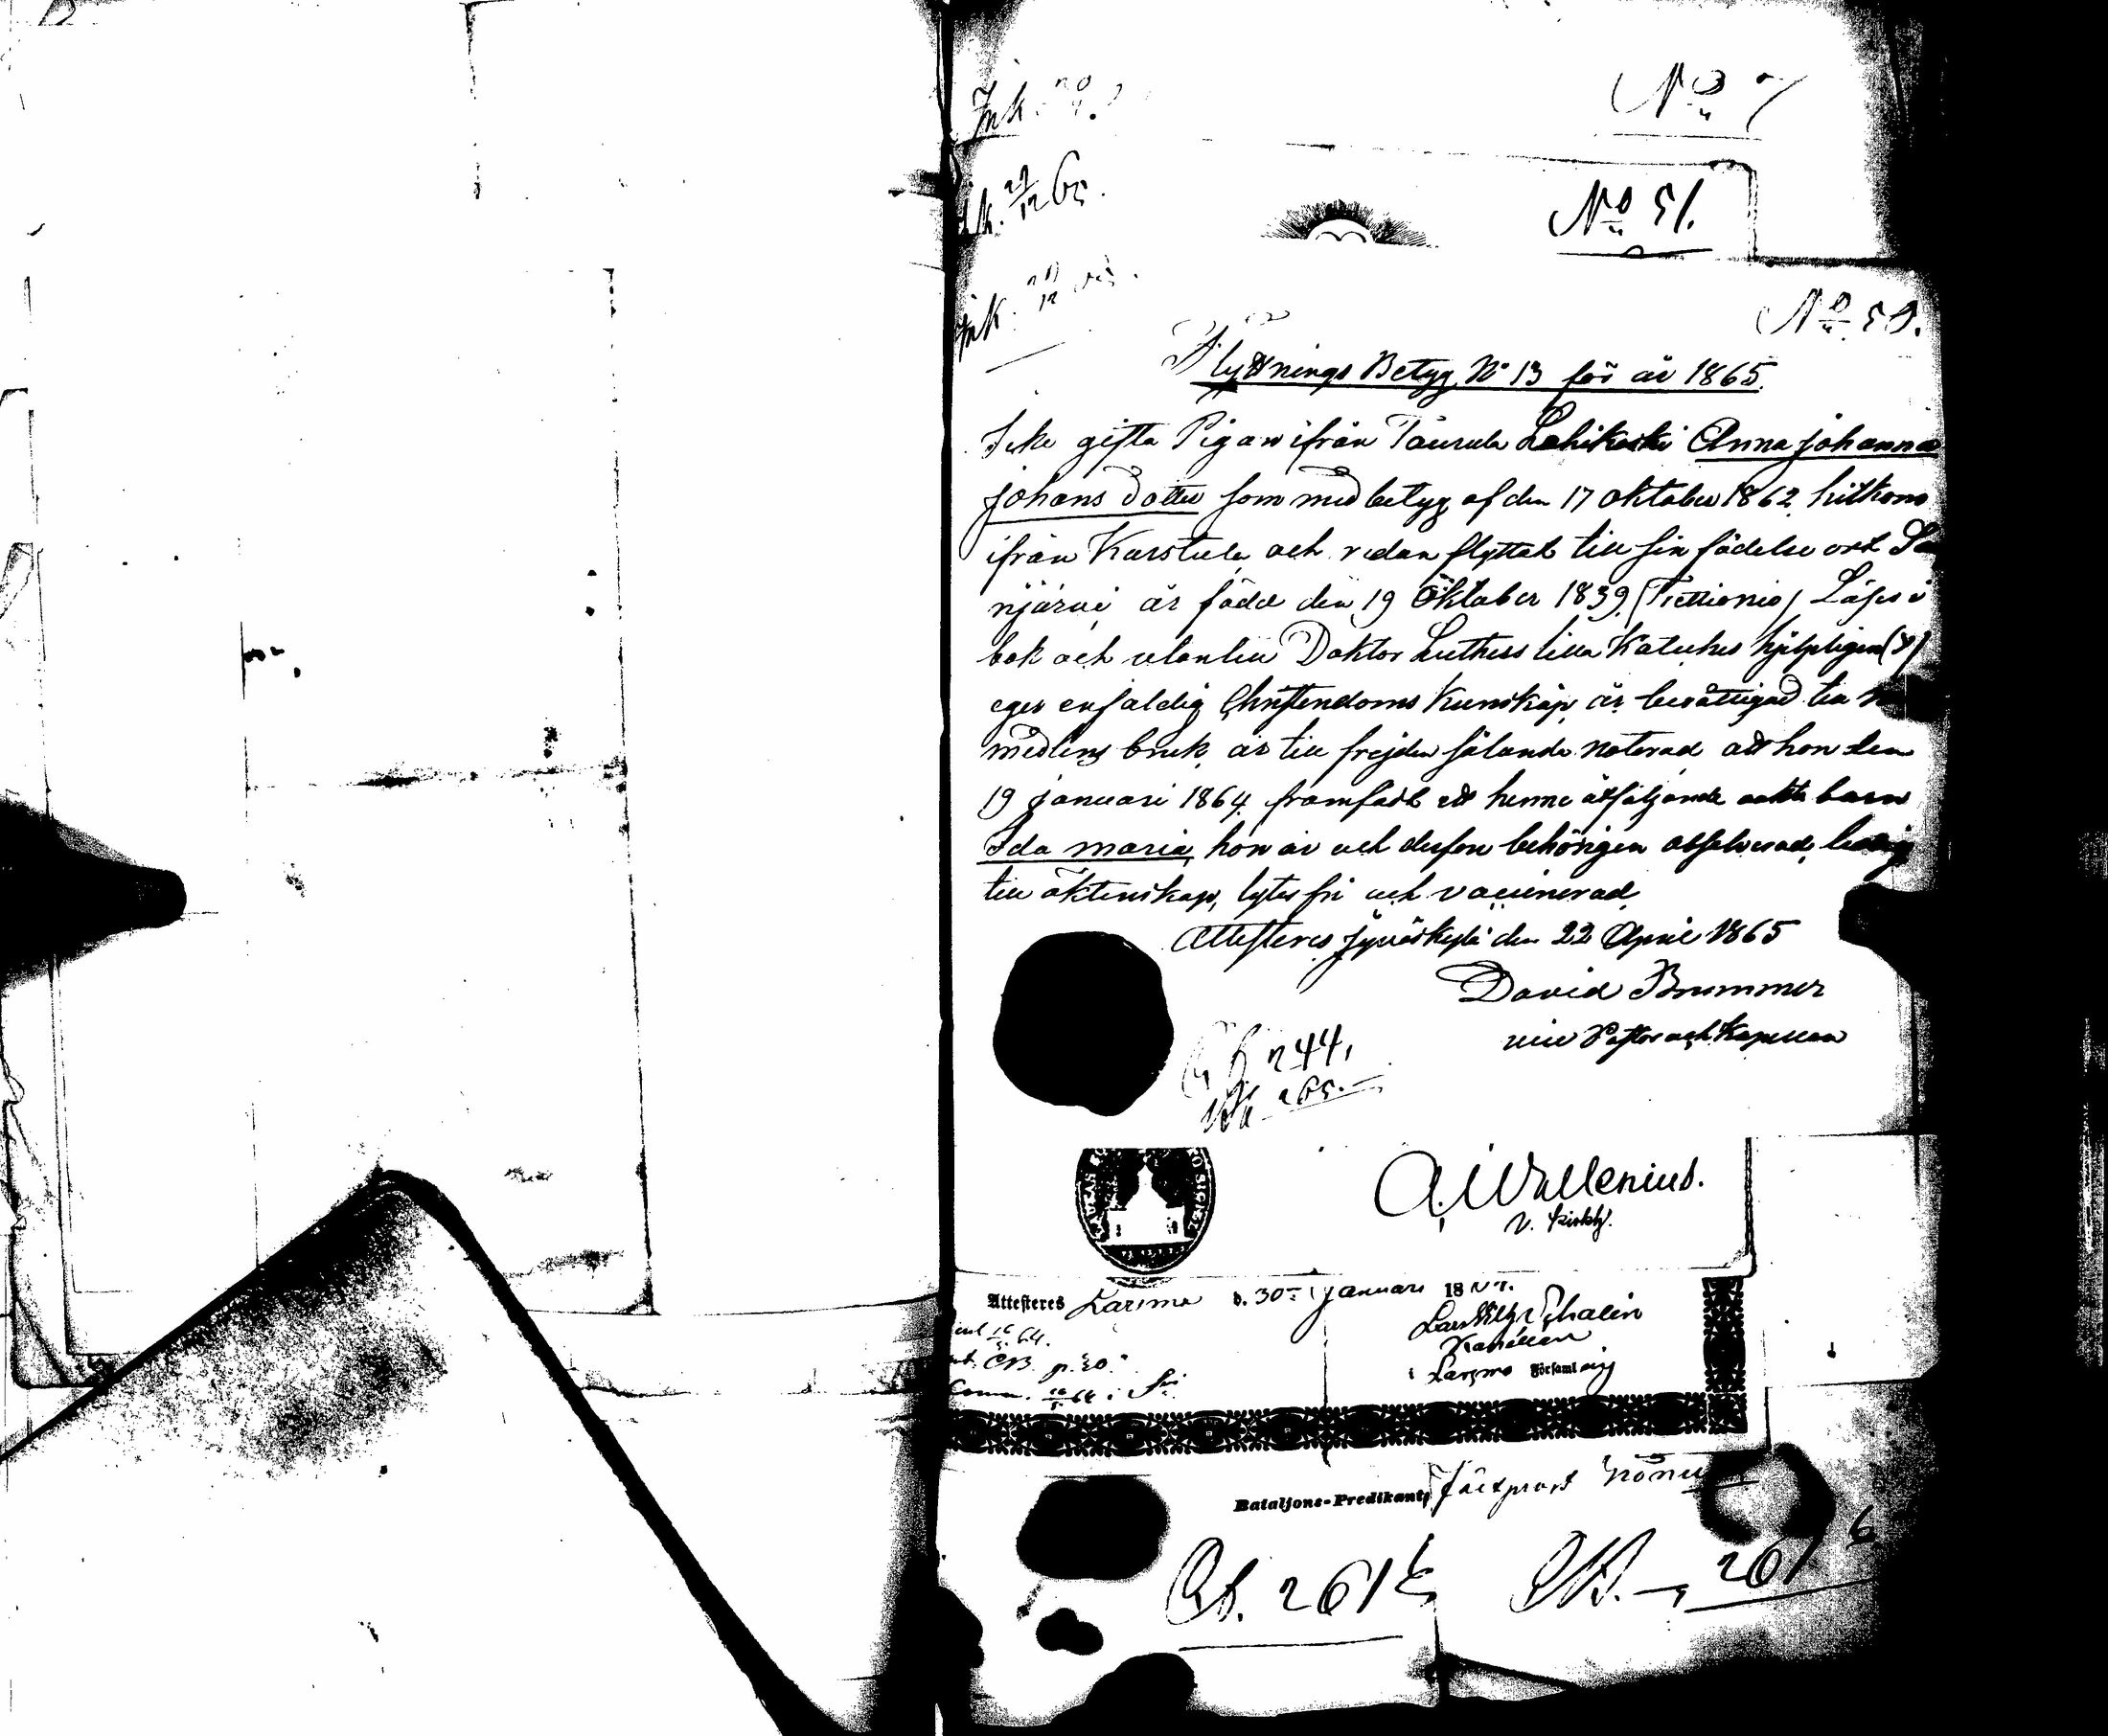 Ink.
No 7
Ink. 29/12 65.
No 51.
Ink.
No 50.
Flyttnings Betyg No 13 för år 1865.
Icke gifta Pigan ifrån Taurula Lahikoski Anna Johanna
Johans dotter som med betyg af den 17 Oktober 1862 hitkom
ifrån Karstula och redan flyttat till sin födelse ort
njärvi, är född den 19 Oktober 1839 Läser i
bok och utantill Doktor Luthers lilla Kateches hjelpligen
eger enfaldig Christendoms Kunskap, är berättigad till
medlens bruk, är till frejden sålunda noterad att hon den
19 januari 1864 framfödt ett henne åtföljande oäkta barn
Ida Maria, hon är och derföre behörigen absolverad, ledig
till äktenskap, lytes fri och vaccinerad,
Attesteres Jyväskylä den 22 April 1865
David Brummer
vice Pastor och Kapellan
244,
265.
A. Wallenius.
V. Kirkh.
Attesteres Larsmo d. 30 Januari 18
Kapellan
i Larsmo Församling
64.
CB. p. 20.
Comm.
Bataljons-Predikant,
Cb. 261
CB. 261
6